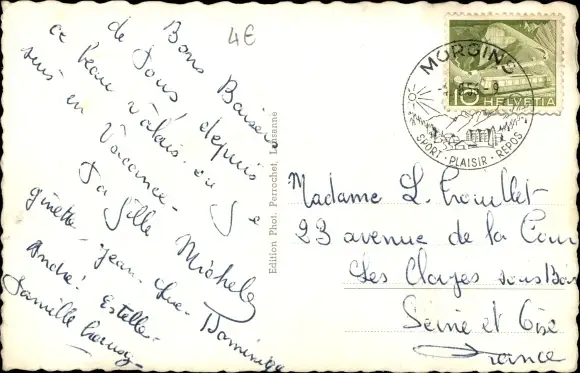 4€
Bons Baisers
de tous, depuis
ce beau Valais où je
suis en Vacance -
Ta fille Michele
ginette - Jean-Que - Dominique
André - Estelle -
famille
Edition Phot. Perrochet, Lausanne
MORGINS
SPORT · PLAISIR · REPOS
10 HELVETIA
Madame L. Trouillet
23 avenue de la Cour
Les Clayes sous Bois
Seine et Oise
France